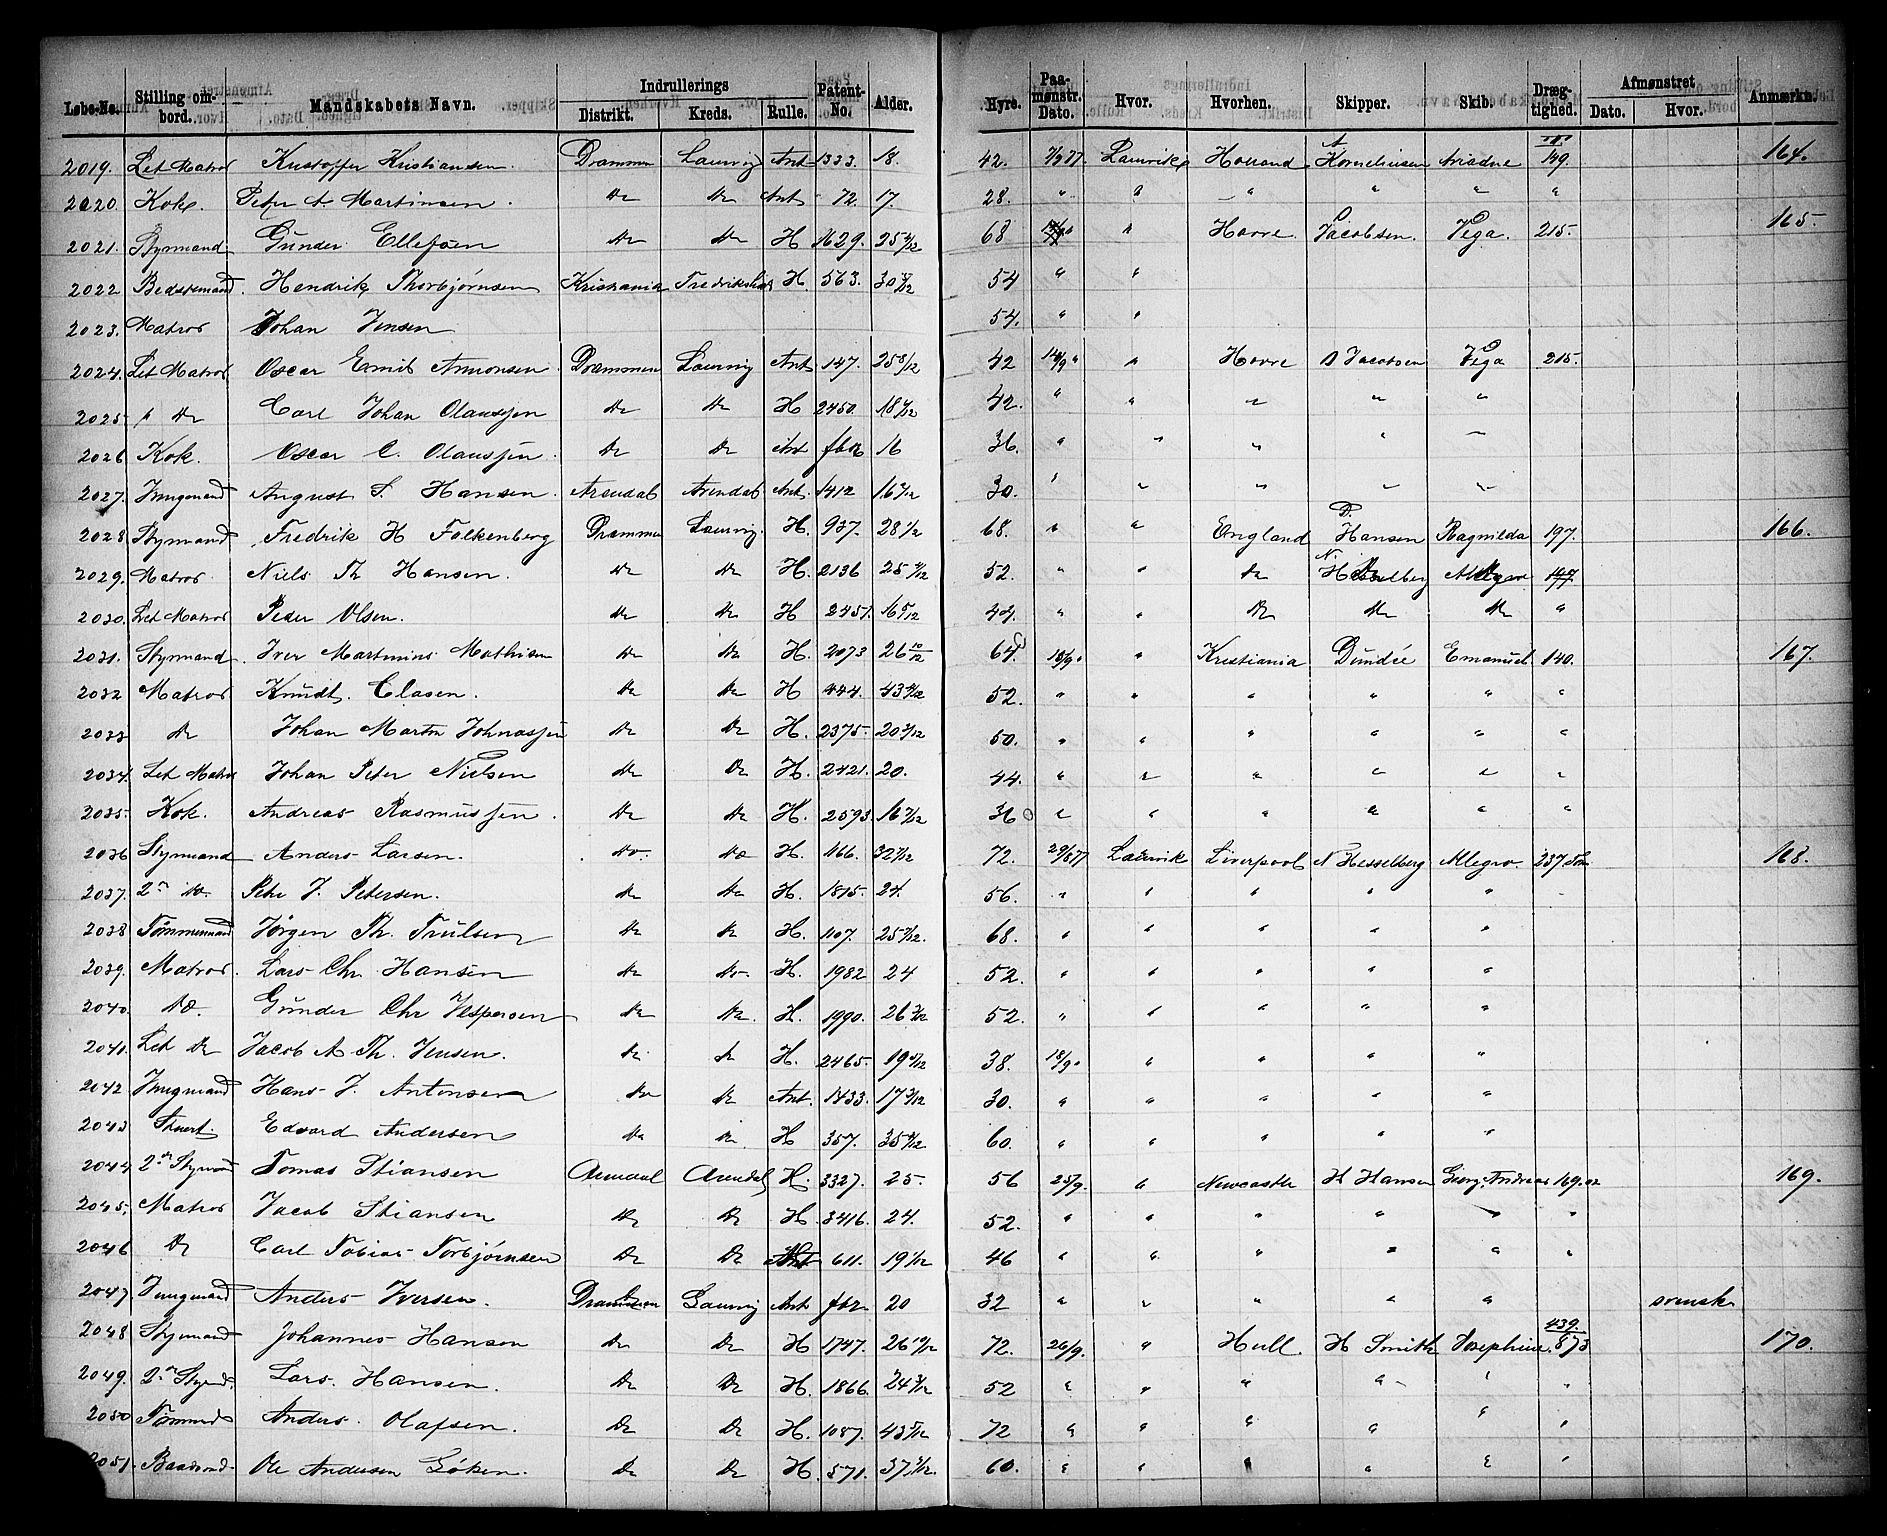 Løbe-No. Stilling ombord. Mandskabets Navn. Indrullerings Distrikt. Kreds. Rulle. Patent-No. Alder. Hyre. Paamønstr. Dato. Hvor. Hvorhen. Skipper. Skib. Drægtighed. Afmønstret Dato. Hvor. Anmærkn.
2019. Let Matros Kristoffer Kristiansen. Drammen Laurvig Ant 1333. 18. 42. Laurvik Holland A Korneliusen Ariadne 149. 164.
2020. Kok. Peter A. Martinsen. do do Ant 72. 17. 28. " " " " " "
2021. Styrmand Gunder Ellefsen do do H 1629. 25 68 " Havre D Jacobsen. Vega. 215. 165.
2022 Bedstemand. Hendrik Thorbjørnsen Kristiania H. 563. 30 54 " "
2023. Matros Johan Jensen 54. " "
2024. Let Matros Oscar Emil Aronsen Drammen Laurvig Ant 147. 25 8/12 42 14/9 " " Havre D Jacobsen Vega 215.
2025 " do Carl Johan Olaussen do do H 2450. 18 42. " " " " "
2026 Kok. Oscar C. Olaussen do do Ant fbr 16 36. " " " " "
2027. Jungmand August S. Hansen. Arendal Arendal Ant. 1412 16 30. " " " " "
2028. Styrmand Fredrik H Falkenberg Drammen Laurvig. H. 937. 28 1/2 68. " " England D. Hansen Ragnilda 197. 166.
2029. Matros. Niels Th Hansen. do do H. 2136 25 52. " " do N. Hesselberg Allegro 147
2030. Let Matros Peder Olsen. do do H 2451. 16 5/12 44. " " do do do "
2031. Styrmand. Iver Martinius Mathisen do do H. 2073 26 10/12 64. 15/9 " " Kristiania Dundée Emanuel 140. 167.
2032 Matros Knudt. Clasen. do do H 444. 43 52. " " " " " "
2033 do Johan Martin Johnassen do do H. 2375. 20 50. " " " " " "
2034. Let Matros Johan Peter Nielsen do do H. 2421. 20. 44. " " " " " "
2035. Kok. Andreas Rasmussen. do do H. 2593. 16 36 " " " " " "
2036 Styrmand Anders Larsen. do. do H. 166. 32 72. Laurvik Liverpool N Hesselberg Allegro. 237 168.
2037. 2n do. Petr J. Petersen. do do H. 1815. 24. 56. " " " " "
2038 Tømmermand Jørgen Th. Trulsen do do H. 1107. 25 68. " " " " "
2039. Matros. Lars Chr Hansen do do H. 1982 24 52. " " " " "
2040. do. Gunder Chr Jespersen do do. H. 1990. 26 52. " " " " "
2041. Let do Jacob A Th. Jensen. do do H. 2465. 19 38. 18/9 " " " " "
2042 Jungmand Hans J. Antonsen do do Ant. 1433. 17 30. " " " " "
2043 Stuert. Edvard Andersen do do H 357. 35 60. " " " " "
2044 2den Styrmand Tomas Stiansen Arendal Arendal H. 3327. 25. 56 25/9. " Newcastle H Hansen Georg Andreas 169. 169.
2045. Matros Jacob Stiansen do do H. 3416. 24. 52. " " " " " "
2046 do Carl Tobias Torbjørnsen do do Ant 611. 19 1/12 46 " " " " " "
2047 Jungmand Anders Iversen. Drammen Laurvig Ant fbr 20 32 " " " " " svensk
2048 Styrmand Johannes Hansen do do H 1747. 26 10/12 72. 26/9. " Hull. H Smith Josephine. 439. 873 170.
2049. 2n Styrmd. Lars. Hansen. do do H. 1866. 24 52 " " " " " "
2050 Tømmermd Anders. Olafsen. do do H. 1087. 43 5/12 72 " " " " " "
2051. Baadsmd. Ole Andersen Göken. do do H. 571. 37 60. " " " " "